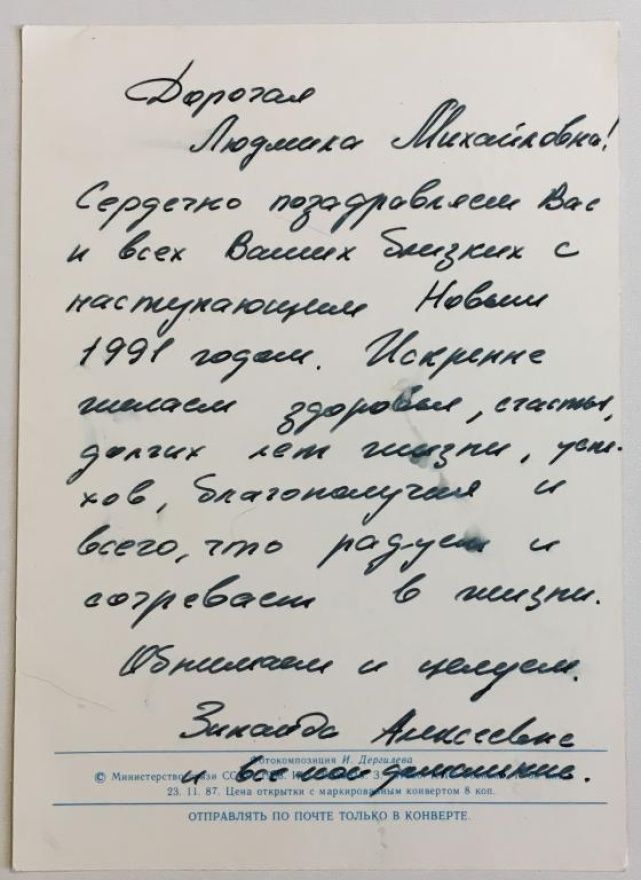 Дорогая
Людмила Михайловна!
Сердечно поздравляем Вас
и всех Ваших близких с
наступающим Новым
1991 годом. Искренне
желаем здоровья, счастья,
долгих лет жизни, успе-
хов, благополучия и
всего, что радует и
согревает в жизни.
Обнимаем и целуем.
Зинаида Алексеевна
Фотокомпозиция И. Дергилева
и все мои домашние.
© Министерство связи
23. 11. 87. Цена открытки с маркированным конвертом 8 коп.
ОТПРАВЛЯТЬ ПО ПОЧТЕ ТОЛЬКО В КОНВЕРТЕ.